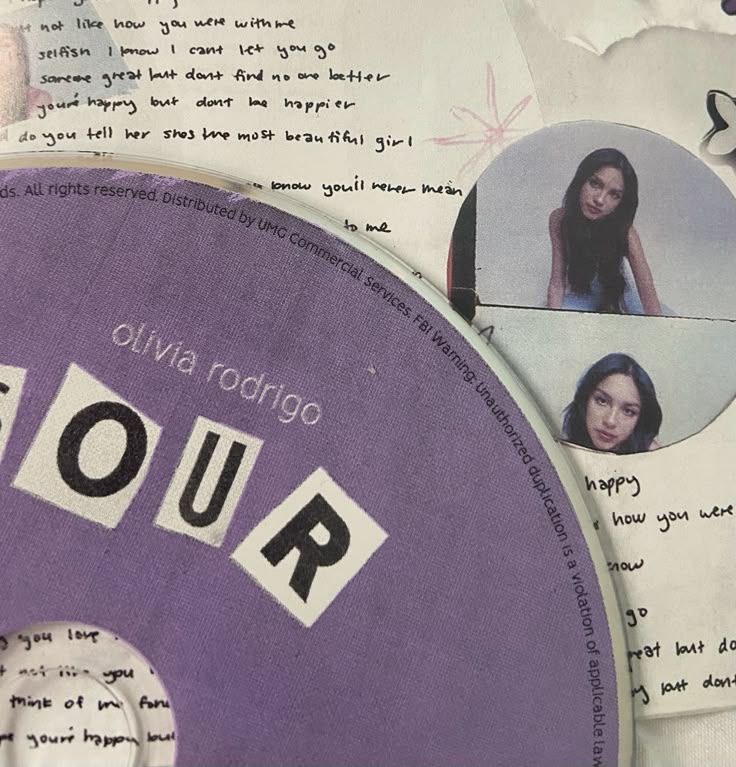 not like how you were with me
selfish I know I cant let you go
someone great but dont find no one better
you're happy but dont be happier
do you tell her shes the most beautiful girl
know you'll never mean
to me
ds. All rights reserved. Distributed by UMG Commercial Services. FBI Warning: Unauthorized duplication is a violation of applicable law
olivia rodrigo
SOUR
happy
how you were
now
go
reat but do
but dont
you love
not like you
think of me fon
you're happy but